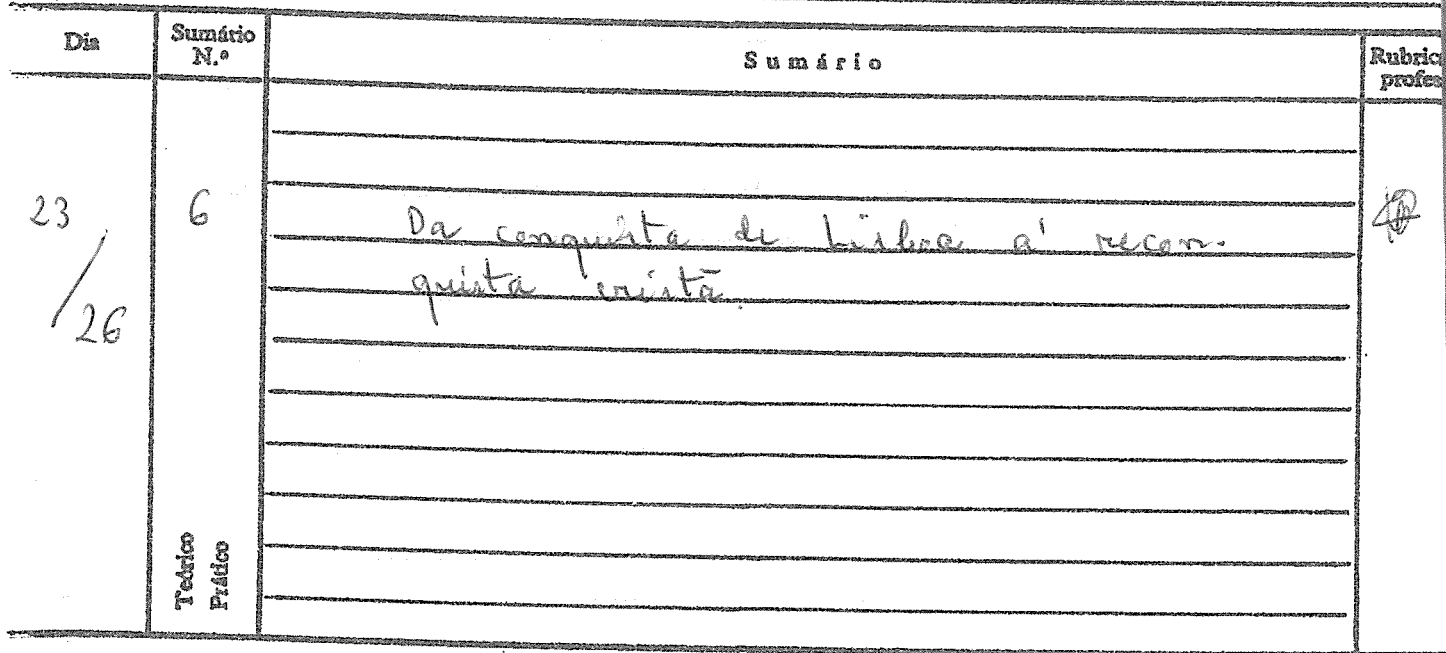 Dia
Sumário
N.º
Sumário
Rubric
profes
23
/26
6
Da conquista de Lisboa a' recon-
quista cristã.
Teórico
Prático